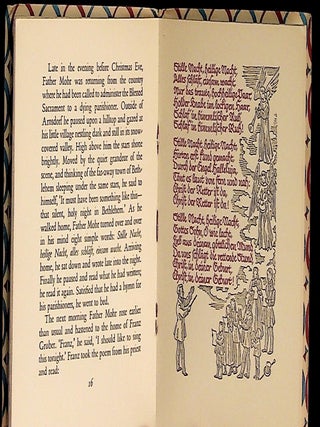 Late in the evening before Christmas Eve,
Father Mohr was returning from the country
where he had been called to administer the Blessed
Sacrament to a dying parishioner. Outside of
Arnsdorf he paused upon a hilltop and gazed at
his little village nestling dark and still in its snow-
covered valley. High above him the stars shone
brightly. Moved by the quiet grandeur of the
scene, and thinking of the far-away town of Beth-
lehem sleeping under the same stars, he said to
himself, 'It must have been something like this—
that silent, holy night in Bethlehem.' As he
walked home, Father Mohr turned over and over
in his mind eight simple words: Stille Nacht,
heilige Nacht, alles schläft, einsam wacht. Arriving
home, he sat down and wrote late into the night.
Finally he paused and read what he had written;
he read it again. Satisfied that he had a hymn for
his parishioners, he went to bed.
The next morning Father Mohr rose earlier
than usual and hastened to the home of Franz
Gruber. 'Franz,' he said, 'I should like to sing
this tonight.' Franz took the poem from his priest
and read:
16
Stille Nacht, heilige Nacht,
Alles schläft, einsam wacht
Nur das traute, hochheilige Paar,
Holder Knabe im lockigen Haar,
Schlaf in himmlischer Ruh!
Schlaf in himmlischer Ruh!
Stille Nacht, heilige Nacht,
Hirten erst kund gemacht
Durch der Engel Halleluja,
Tönt es laut von fern und nah:
Christ der Retter ist da
Christ der Retter ist da.
Stille Nacht, heilige Nacht,
Gottes Sohn, O wie lacht
Lieb aus deinem göttlichen Mund,
Da uns schlägt die rettende Stund,
Christ, in deiner Geburt,
Christ, in deiner Geburt!